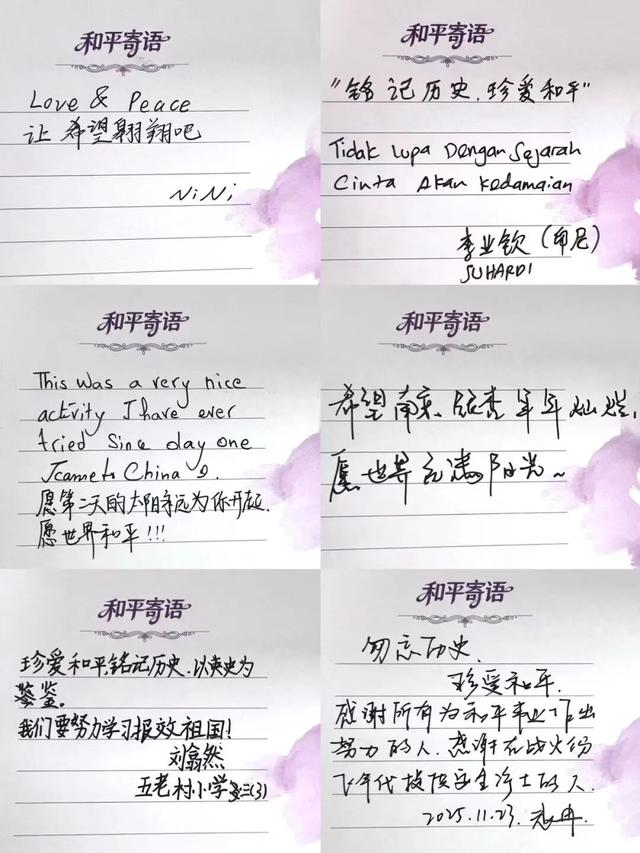 和平寄语
Love & Peace
让希望翱翔吧
NiNi
和平寄语
"铭记历史,珍爱和平"
Tidak Lupa Dengan Sejarah
Cinta Akan Kedamaian
李业钦(印尼)
SUHARDI
和平寄语
This was a very nice
activity I have ever
tried Since day one
I came to China
愿第二天的太阳永远为你升起.
愿世界和平!!!
和平寄语
希望南京 年年灿烂,
愿世界充满阳光~
和平寄语
珍爱和平,铭记历史,以史为
鉴。
我们要努力学习报效祖国!
刘翕然
五老村小学 三(3)
和平寄语
勿忘历史,
珍爱和平.
感谢所有为和平事业作出
努力的人.感谢在战火纷
飞年代 安全净土的人
2025.11.23.